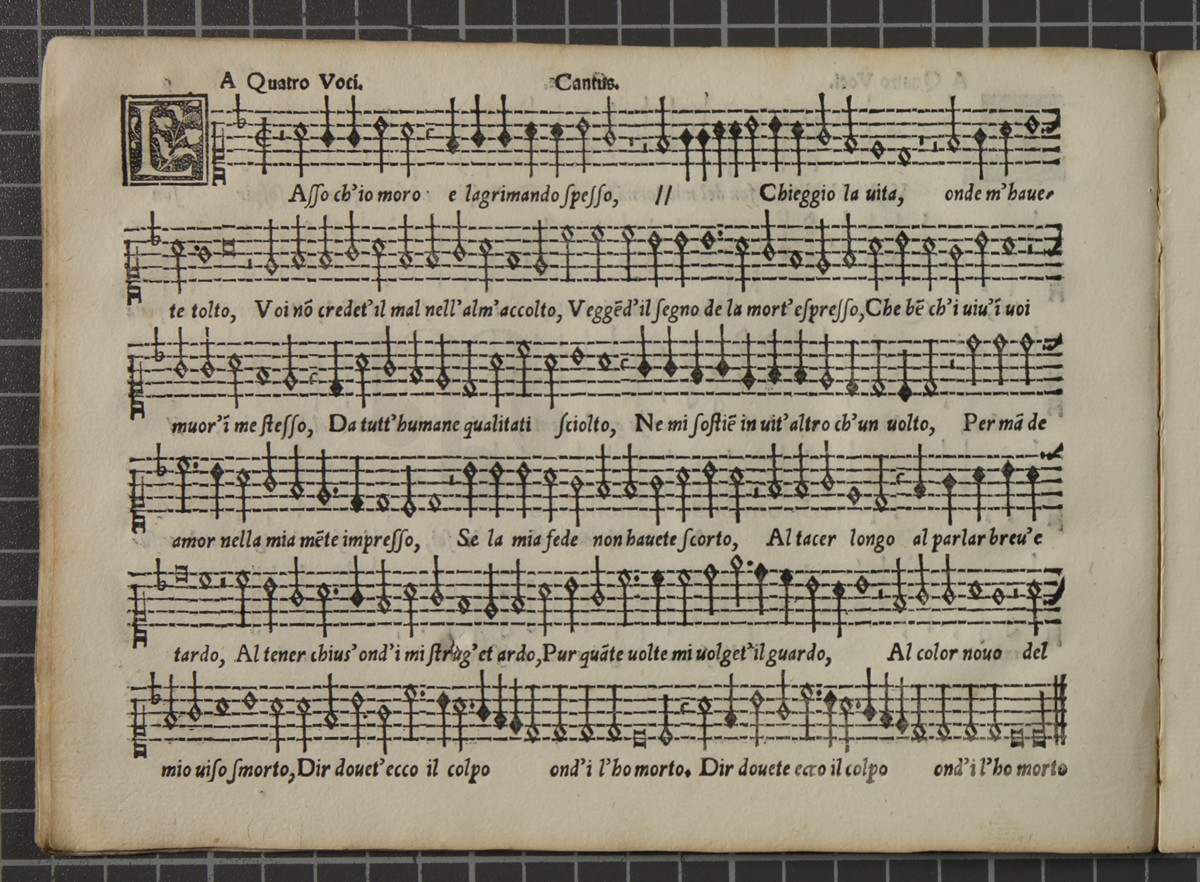 A Quatro Voci. Cantus.
LAſſo ch'io moro e lagrimando ſpeſſo, // Chieggio la uita, onde m'haue⸗
te tolto, Voi nō credet'il mal nell'alm'accolto, Veggēd'il ſegno de la mort'eſpreſſo, Che bē ch'i uiu'ī uoi
muor'ī me ſteſſo, Da tutt'humane qualitati ſciolto, Ne mi ſoſtiē in uit'altro ch'un uolto, Per mā de
amor nella mia mēte impreſſo, Se la mia fede non hauete ſcorto, Al tacer longo al parlar breu'e
tardo, Al tener chius' ond'i mi ſtrug'et ardo, Pur quāte uolte mi uolget'il guardo, Al color nouo del
mio uiſo ſmorto, Dir douet'ecco il colpo ond'i l'ho morto. Dir douete ecco il colpo ond'i l'ho morto